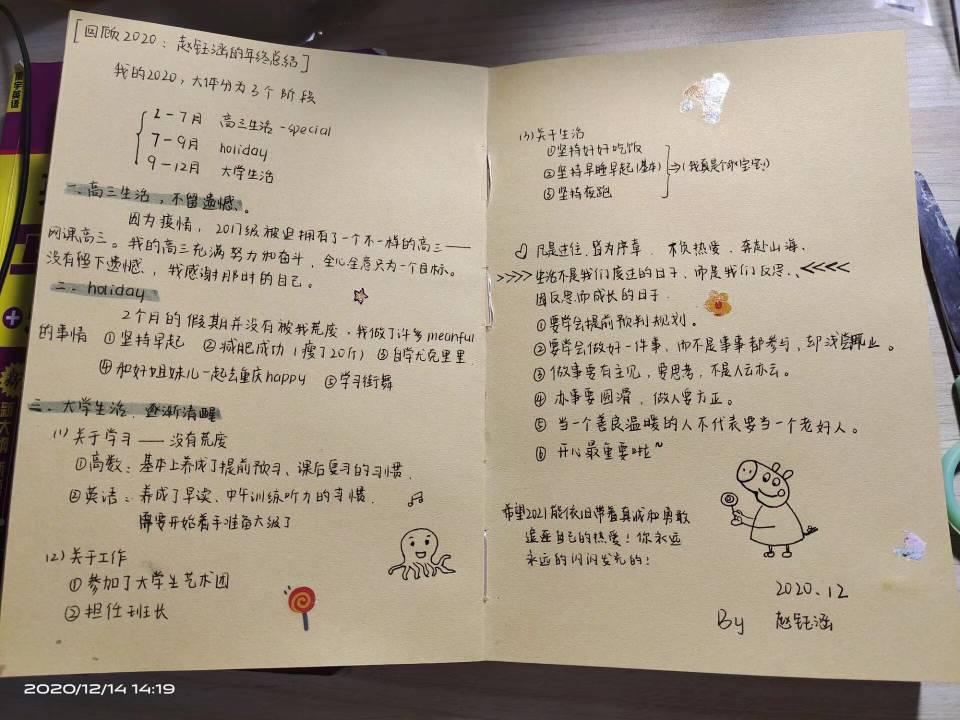 [回顾2020：赵钰涵的年终总结]
我的2020，大体分为3个阶段
2-7月 高三生活-special
7-9月 holiday
9-12月 大学生活
一、高三生活，不留遗憾。
因为疫情，2017级被迫拥有了一个不一样的高三——
网课高三。我的高三充满努力和奋斗，全心全意只为一个目标。
没有留下遗憾，我感谢那时的自己。
二、holiday
2个月的假期并没有被我荒废，我做了许多meanful
的事情 ①坚持早起 ②减肥成功（瘦了20斤） ③自学尤克里里
④和好姐妹儿一起去重庆happy ⑤学习街舞
三、大学生活，逐渐清醒
(1)关于学习——没有荒废
①高数：基本上养成了提前预习、课后复习的习惯.
②英语：养成了早读、中午训练听力的习惯.
需要开始着手准备六级了
(2)关于工作
①参加了大学生艺术团
②担任班长
(3)关于生活
①坚持好好吃饭
②坚持早睡早起(基本) ⇒(我真是个乖宝宝!)
③坚持夜跑
凡是过往，皆为序章. 不负热爱，奔赴山海.
>>>>> 生活不是我们度过的日子，而是我们反思、<<<<<
因反思而成长的日子.
①要学会提前预判规划。
②要学会做好一件事，而不是事事都参与，却浅尝辄止。
③做事要有主见，要思考，不是人云亦云。
④办事要圆滑，做人要方正。
⑤当一个善良温暖的人不代表要当一个老好人。
⑥开心最重要啦~
希望2021能依旧带着真诚和勇敢
追逐自己的热爱！你永远
永远的闪闪发光的！
2020.12
By 赵钰涵
猿学英语
2020/12/14 14:19